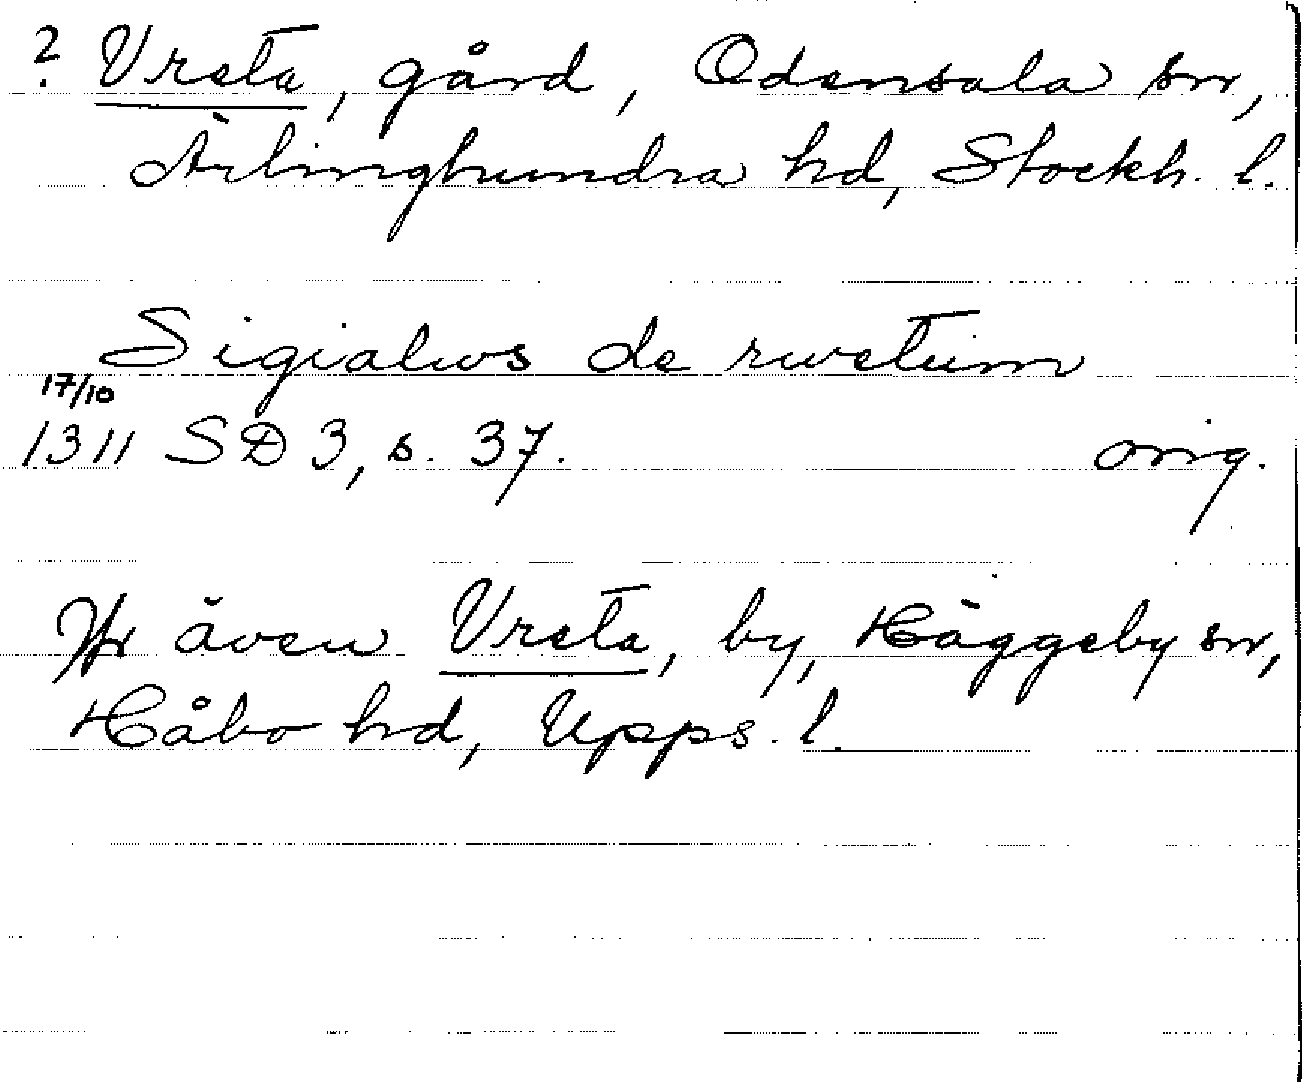 ? Vreta, gård, Odensala sn,
Ärlinghundra hd, Stockh. l.
Sigialws de rwetum
17/10
1311 SD 3, s. 37. orig.
Jfr även Vreta, by, Häggeby sn,
Håbo hd, Upps. l.